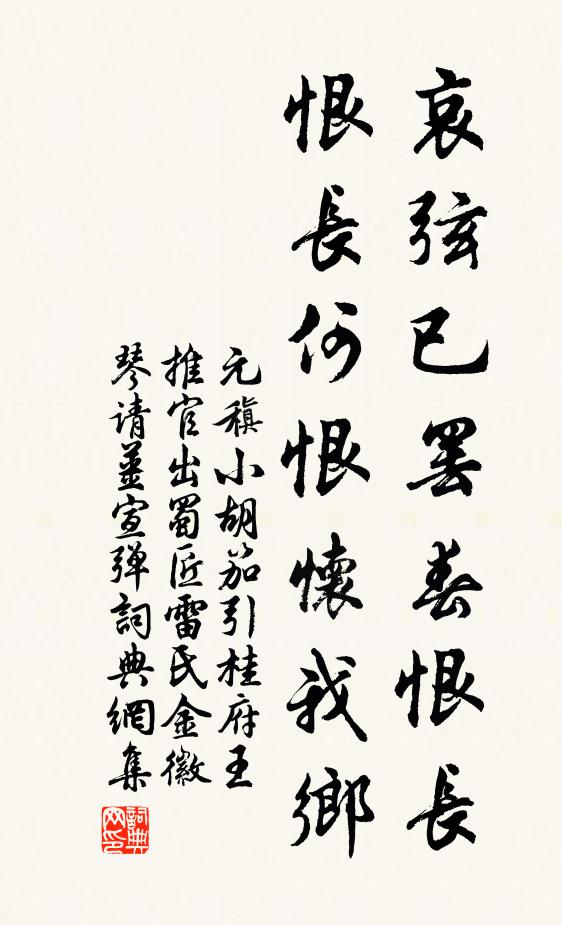 哀弦已罢春恨長
恨長何恨懷我鄉
元稹小胡笳引桂府王
推官出蜀匠雷氏金徽
琴请薑宣弹詞典網集
詞典
网印